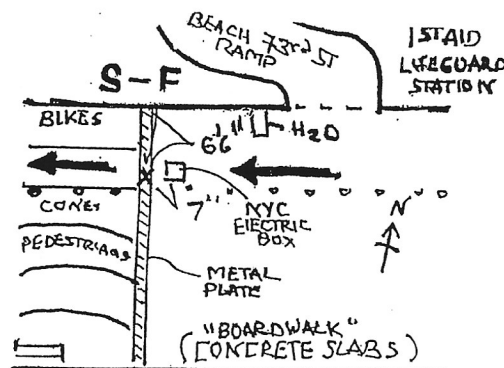 BEACH 73rd ST
RAMP
1ST AID
LIFEGUARD
STATION
S-F
BIKES
66"
H2O
CONES
7"
NYC
ELECTRIC
BOX
N
PEDESTRIANS
METAL
PLATE
"BOARDWALK"
(CONCRETE SLABS)